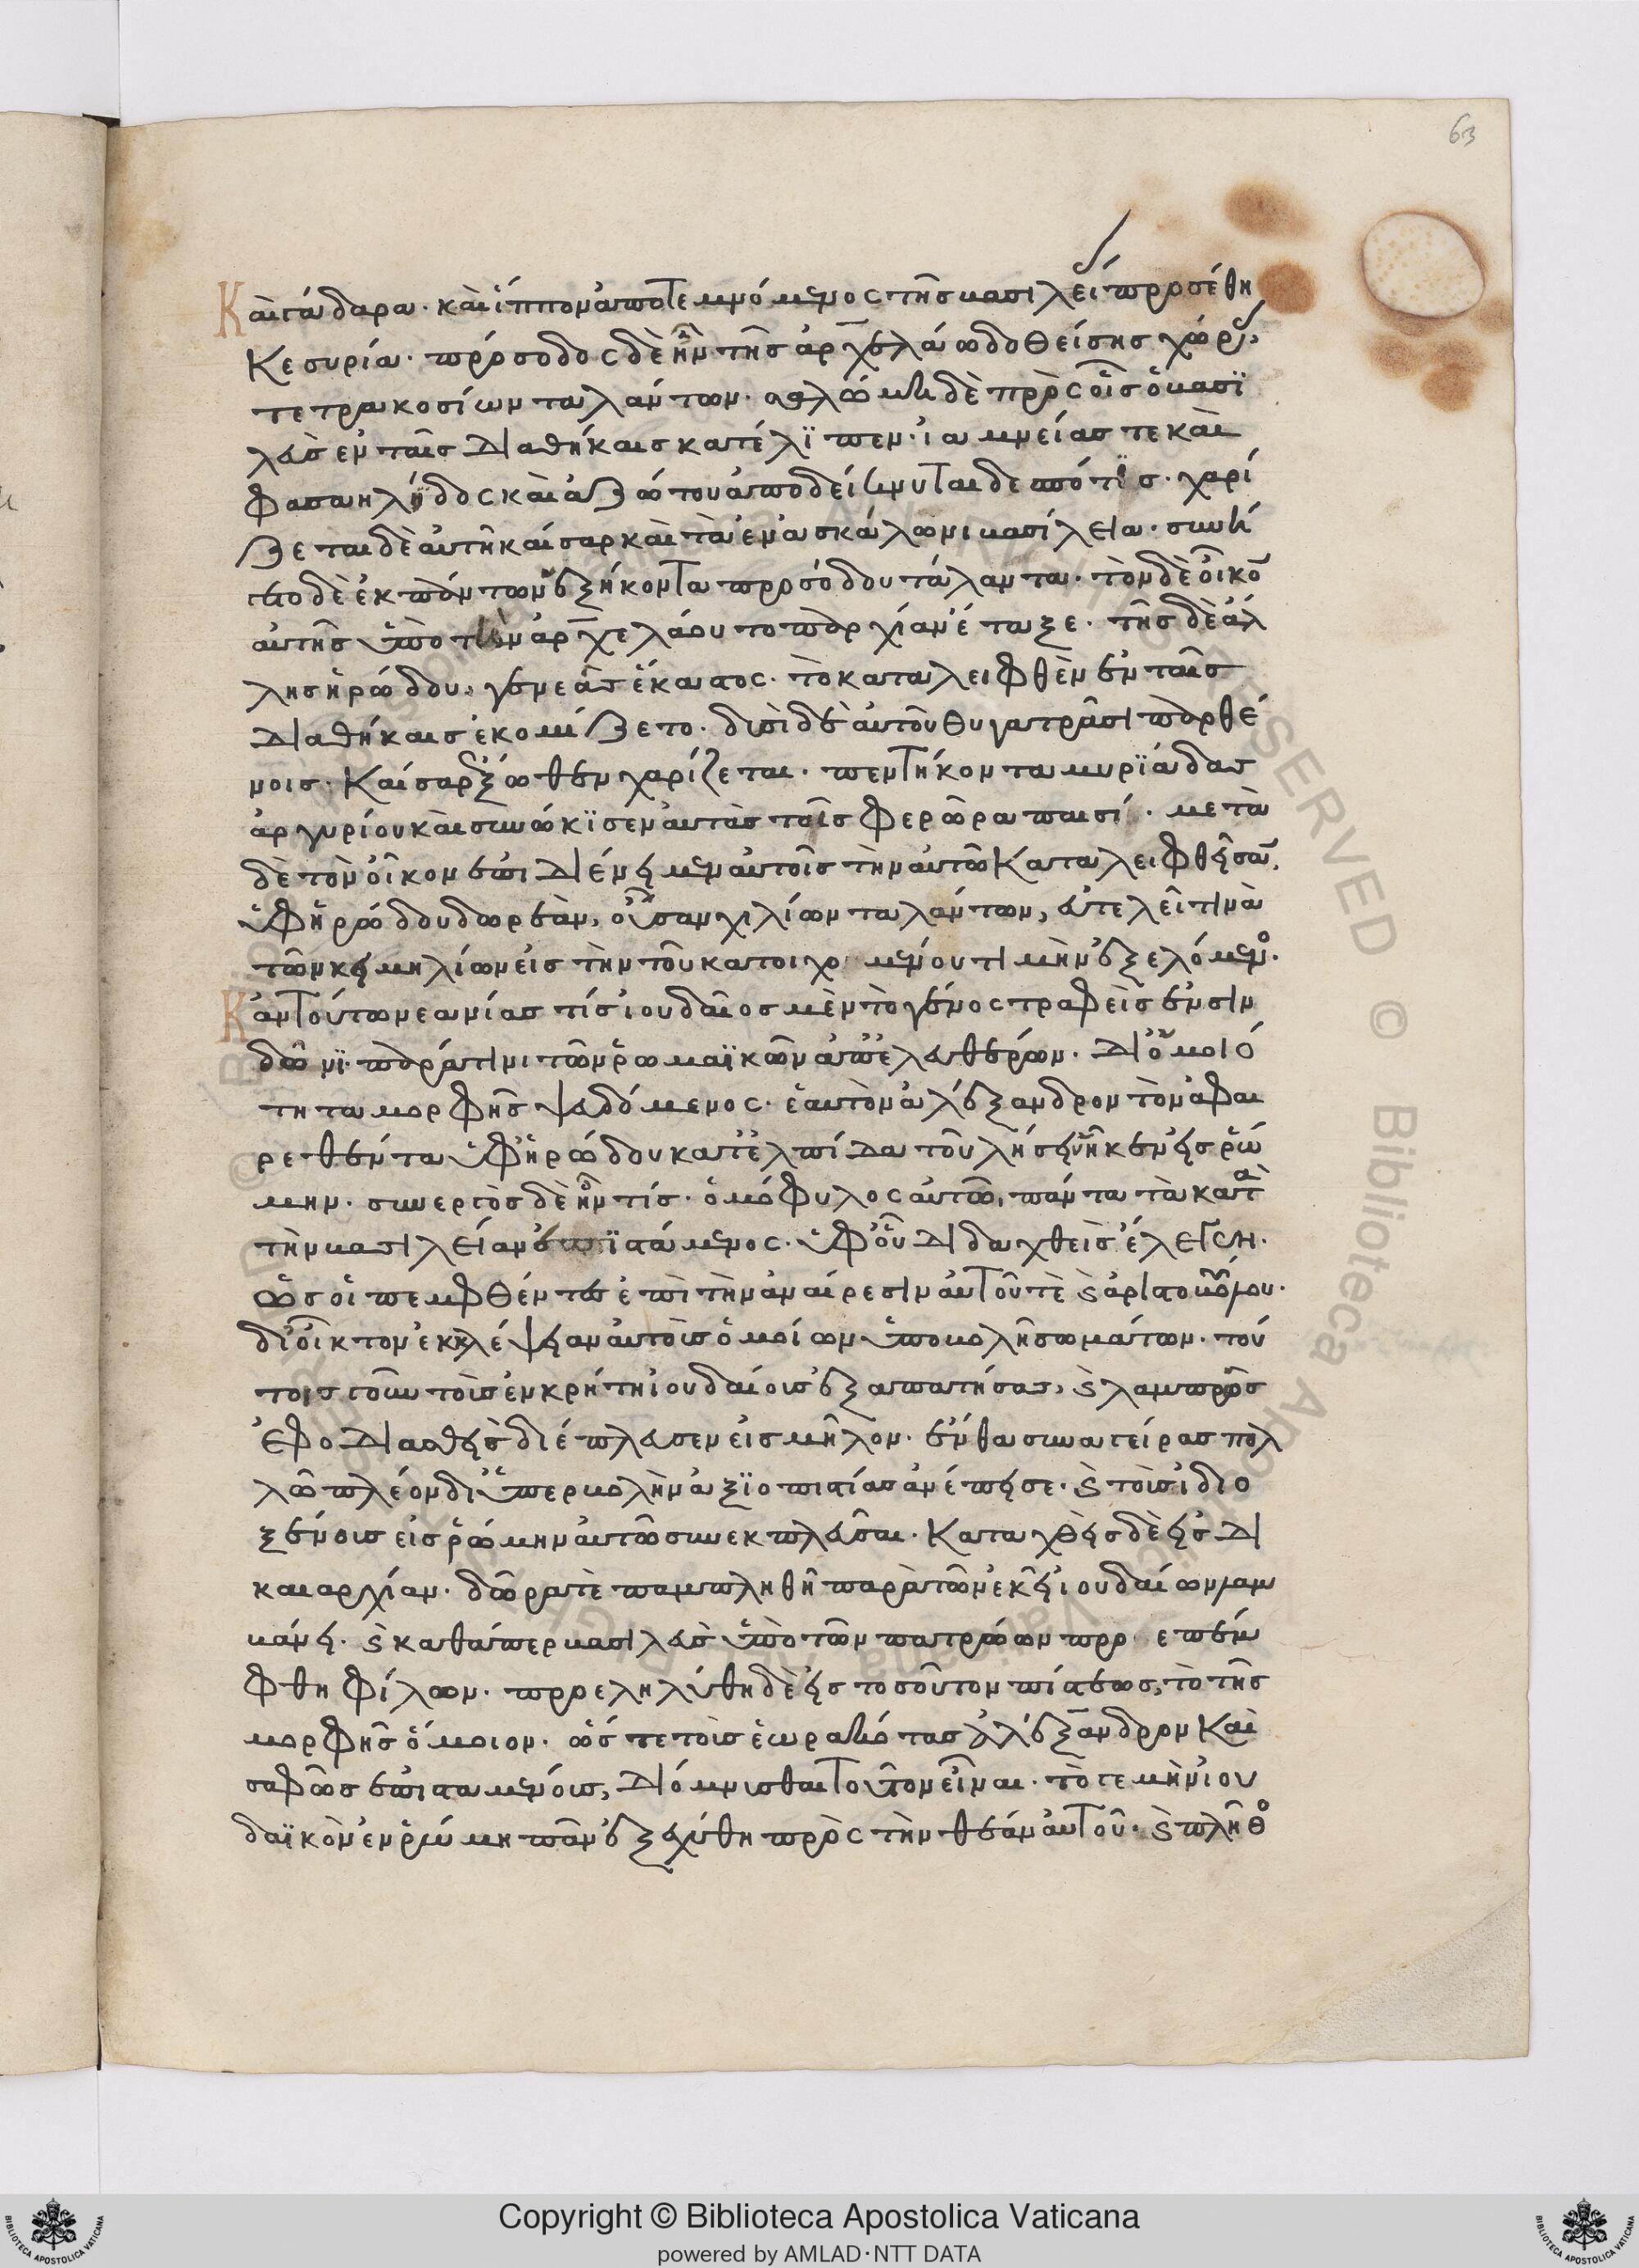 63
Καὶ γάδαρα· καὶ ἵππον ἀποτεμνόμενος τῆς βασιλεί προσέθη
κε συρία· πρόσοδος δὲ ἦν τῆς ἀρχελάω δοθείσης χώρας,
τετρακοσίων ταλάντων· σαλώμη δὲ πρὸς οἷς ὁ βασϊ
λεὺς ἐν ταῖς διαθήκαις κατέλϊπεν· ἰαμνείας τε καὶ
φασαηλΐδος καὶ ἀζώτου ἀποδείκνυται δεσπότϊς· χαρί
ζεται δὲ αὐτῆ καίσαρ καὶ τὰ ἐν ἀσκάλωνι βασίλεια· συνή
γετο δὲ ἐκ πάντων ἑξήκοντα προσόδου τάλαντα· τὸν δὲ οἶκον
αὐτῆς ὑπὸ τὴν ἀρχελάου τοπαρχίαν ἔταξε· τῆς δὲ ἄλ
λης ἡρώδου, γενεᾶς ἕκαστος· τὸ καταλειφθὲν ἐν ταῖς
διαθήκαις ἐκομίζετο· δυσὶ δὲ αὐτοῦ θυγατράσι παρθέ
νοις· Καίσαρ ἔξωθεν χαρίζεται· πεντήκοντα μυρϊάδας
ἀργυρίου καὶ συνώκϊσεν αὐτὰς τοῖς φερώρα παισί· μετὰ
δὲ τὸν οἶκον ἐπιδιένειμεν αὐτοῖς τὴν αὐτῶ Καταλειφθεῖσαν,
ὑφ' ἡρώδου δωρεάν, οὖσαν χιλίων ταλάντων, εὐτελεῖ τινὰ
τῶν κειμηλίων εἰς τὴν τοῦ κατοιχομένου τιμὴν ἐξελόμενος·
Κἀν τούτω νεανίας τίς ἰουδαῖος μὲν τὸ γένος τραφεὶς ἐν σιν
δῶνϊ παρά τινι τῶν ῥωμαϊκῶν ἀπελευθέρων· δι' ὁμοιό
τητα μορφῆς ψευδόμενος· ἑαυτὸν ἀλέξανδρον τὸν ἀφαι
ρεθέντα ὑφ' ἡρώδου κατ' ἐλπίδα τοῦ λήσειν ἧκεν εἰς ῥώ
μην· συνεργὸς δὲ ἦν τίς· ὁμόφυλος αὐτῶ, πάντα τὰ κατὰ
τὴν βασιλείαν ἐπϊστάμενος· ὑφ' οὗ διδαχθεὶς ἔλεγεν·
ὡς οἱ πεμφθέντες ἐπὶ τὴν ἀναίρεσιν αὐτοῦ τὲ καὶ ἀριστοβούλου·
δι' οἶκτον ἐκκλέψειαν αὐτοὺς ὁμοίων ὑποβολῆ σωμάτων· τού
τοις γοῦν τοὺς ἐν κρήτη ἰουδαίους ἐξαπατήσας, καὶ λαμπρῶς
ἐφοδιασθεὶς διέπλευσεν εἰς μῆλον· ἔνθα συναγείρας πολ
λῶ πλέον δι' ὑπερβολὴν ἀξϊοπιστίας ἀνέπεισε· καὶ τοὺς ἰδιο
ξένους εἰς ῥώμην αὐτῶ συνεκπλεῦσαι· Καταχθεὶς δὲ εἰς δι
καιαρχίαν· δῶρά τε παμπληθῆ παρὰ τῶν ἐκεῖ ἰουδαίων λαμ
βάνει· καὶ καθάπερ βασιλεὺς ὑπὸ τῶν πατρώων προεπέμ
φθη φίλων· προεληλύθη δὲ εἰς τοσοῦτον πίστεως, τὸ τῆς
μορφῆς ὅμοιον· ὥστε τοὺς ἑωρακότας ἀλέξανδρον Καὶ
σαφῶς ἐπισταμένους, διόμνυσθαι τοῦτον εἶναι· τό τε μὴν ἰου
δαϊκὸν ἐν ῥώμη πᾶν ἐξεχύθη πρὸς τὴν θέαν αὐτοῦ· καὶ πλῆθος
Copyright © Biblioteca Apostolica Vaticana
powered by AMLAD·NTT DATA